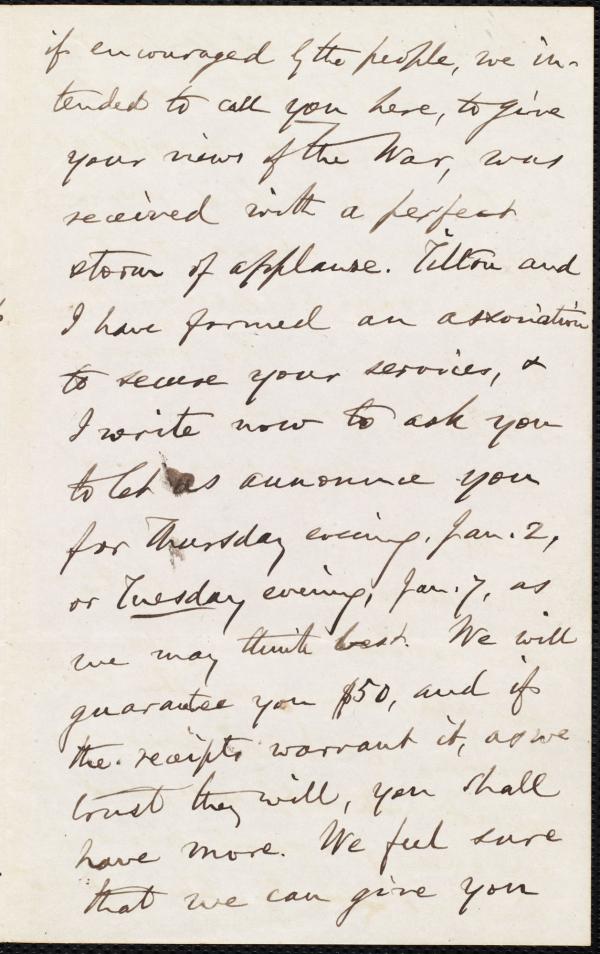 if encouraged by the people, we in-
tended to call you here, to give
your views of the War, was
received with a perfect
storm of applause. Tilton and
I have formed an association
to secure your services, &
I write now to ask you
to let us announce you
for Thursday evening, Jan. 2,
or Tuesday evening, Jan. 7, as
we may think best. We will
guarantee you $50, and if
the receipts warrant it, as we
trust they will, you shall
have more. We feel sure
that we can give you